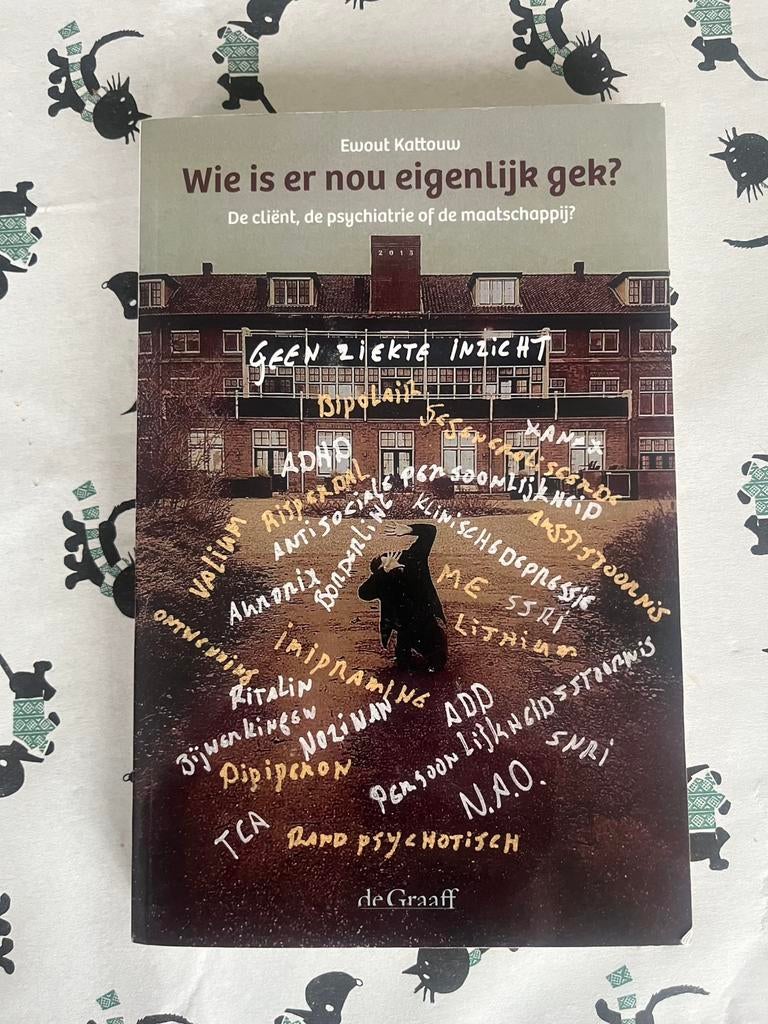 Ewout Kattouw
Wie is er nou eigenlijk gek?
De cliënt, de psychiatrie of de maatschappij?
2015
GEEN ZIEKTE INZICHT
Bipolair
GEGENERALISEERDE
XANAX
ADHD
RISPERDAL
ANTISOCIALE PERSOONLIJKHEID
Valium
BORDERLINE
KLINISCHE DEPRESSIE
ANGSTSTOORNIS
AURORIX
ME
SSRI
LITHIUM
ONTWENNING
IMIPRAMINE
RITALIN
Bijwerkingen
NOZINAN
ADD
PERSOONLIJKHEIDSSTOORNIS
SNRI
Dipiperon
N.A.O.
TCA
RAND PSYCHOTISCH
de Graaff